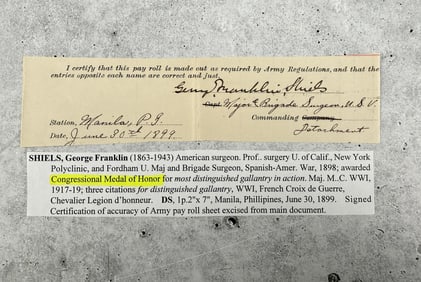 I certify that this pay roll is made out as required by Army Regulations, and that the
entries opposite each name are correct and just.
Geng Franklin Shiels
Capt Major & Brigade Surgeon, U.S.V.
Commanding Company
Station, Manila, P.I. Detachment
Date, June 30th 1899.
SHIELS, George Franklin (1863-1943) American surgeon. Prof.. surgery U. of Calif., New York
Polyclinic, and Fordham U. Maj and Brigade Surgeon, Spanish-Amer. War, 1898; awarded
Congressional Medal of Honor for most distinguished gallantry in action. Maj. M..C. WWI,
1917-19; three citations for distinguished gallantry, WWI, French Croix de Guerre,
Chevalier Legion d'honneur. DS, 1p.2"x 7", Manila, Phillipines, June 30, 1899. Signed
Certification of accuracy of Army pay roll sheet excised from main document.